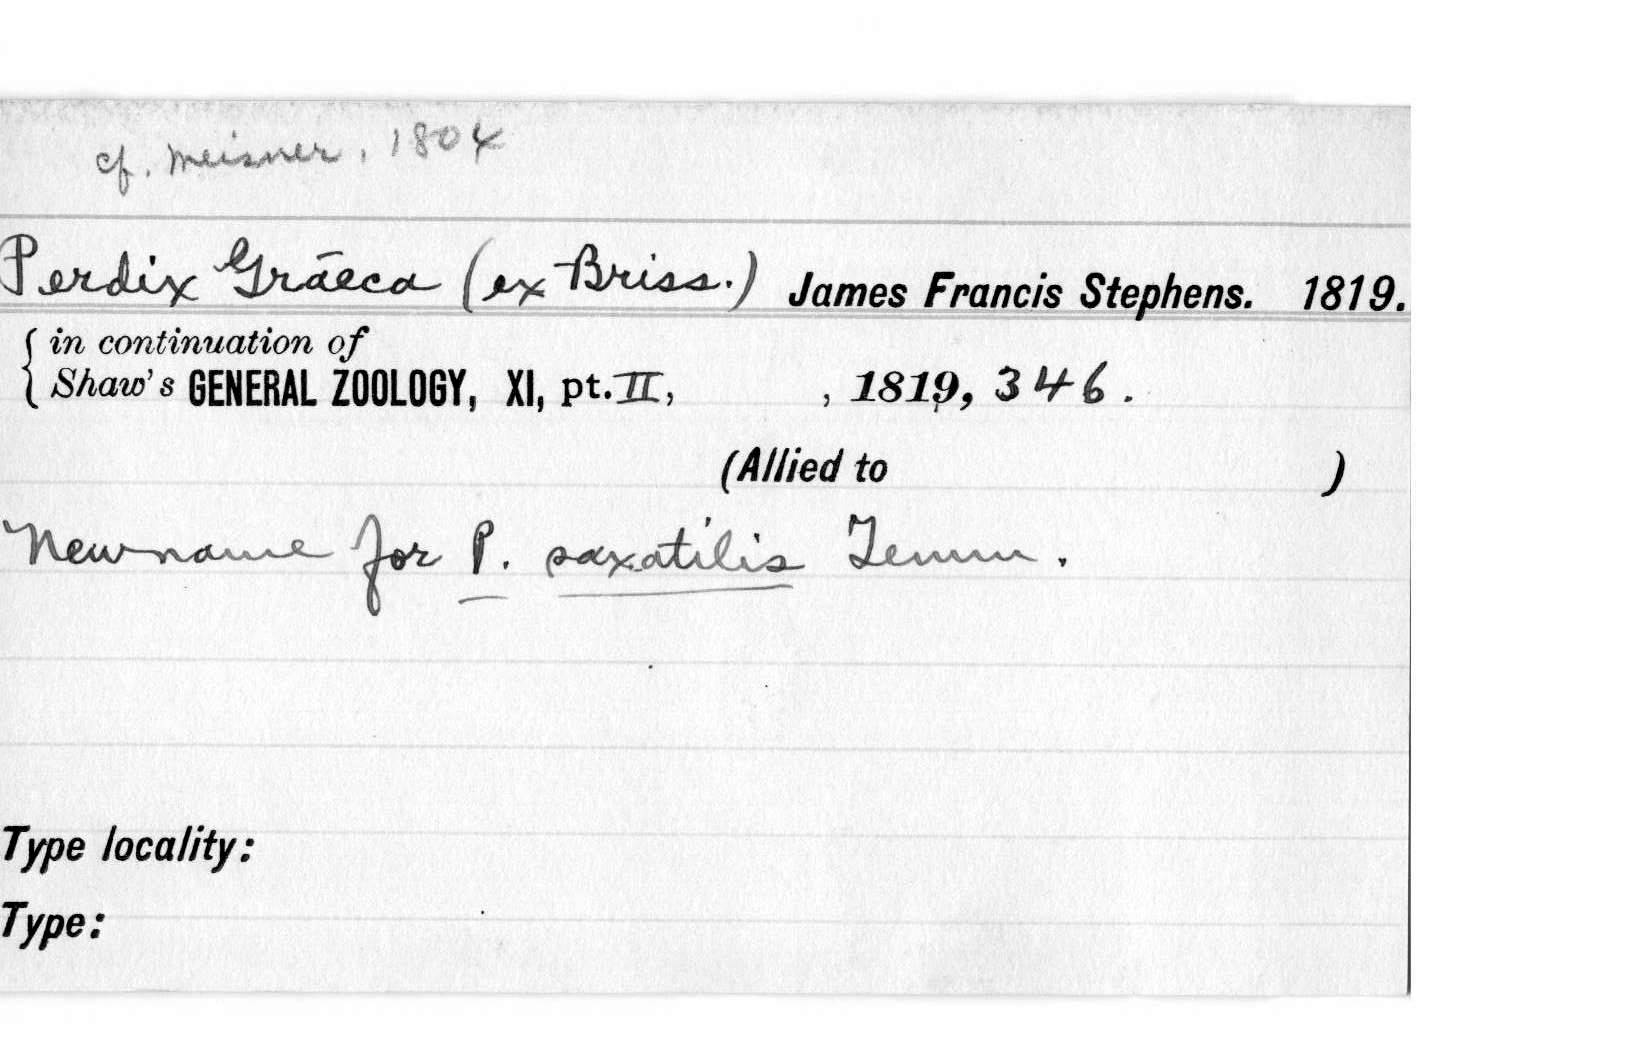 cf. Meisner, 1804
Perdix Graeca (ex Briss.) James Francis Stephens. 1819.
{ in continuation of
Shaw's GENERAL ZOOLOGY, XI, pt. II, , 1819, 346.
(Allied to )
New name for P. saxatilis Temm.
Type locality:
Type: